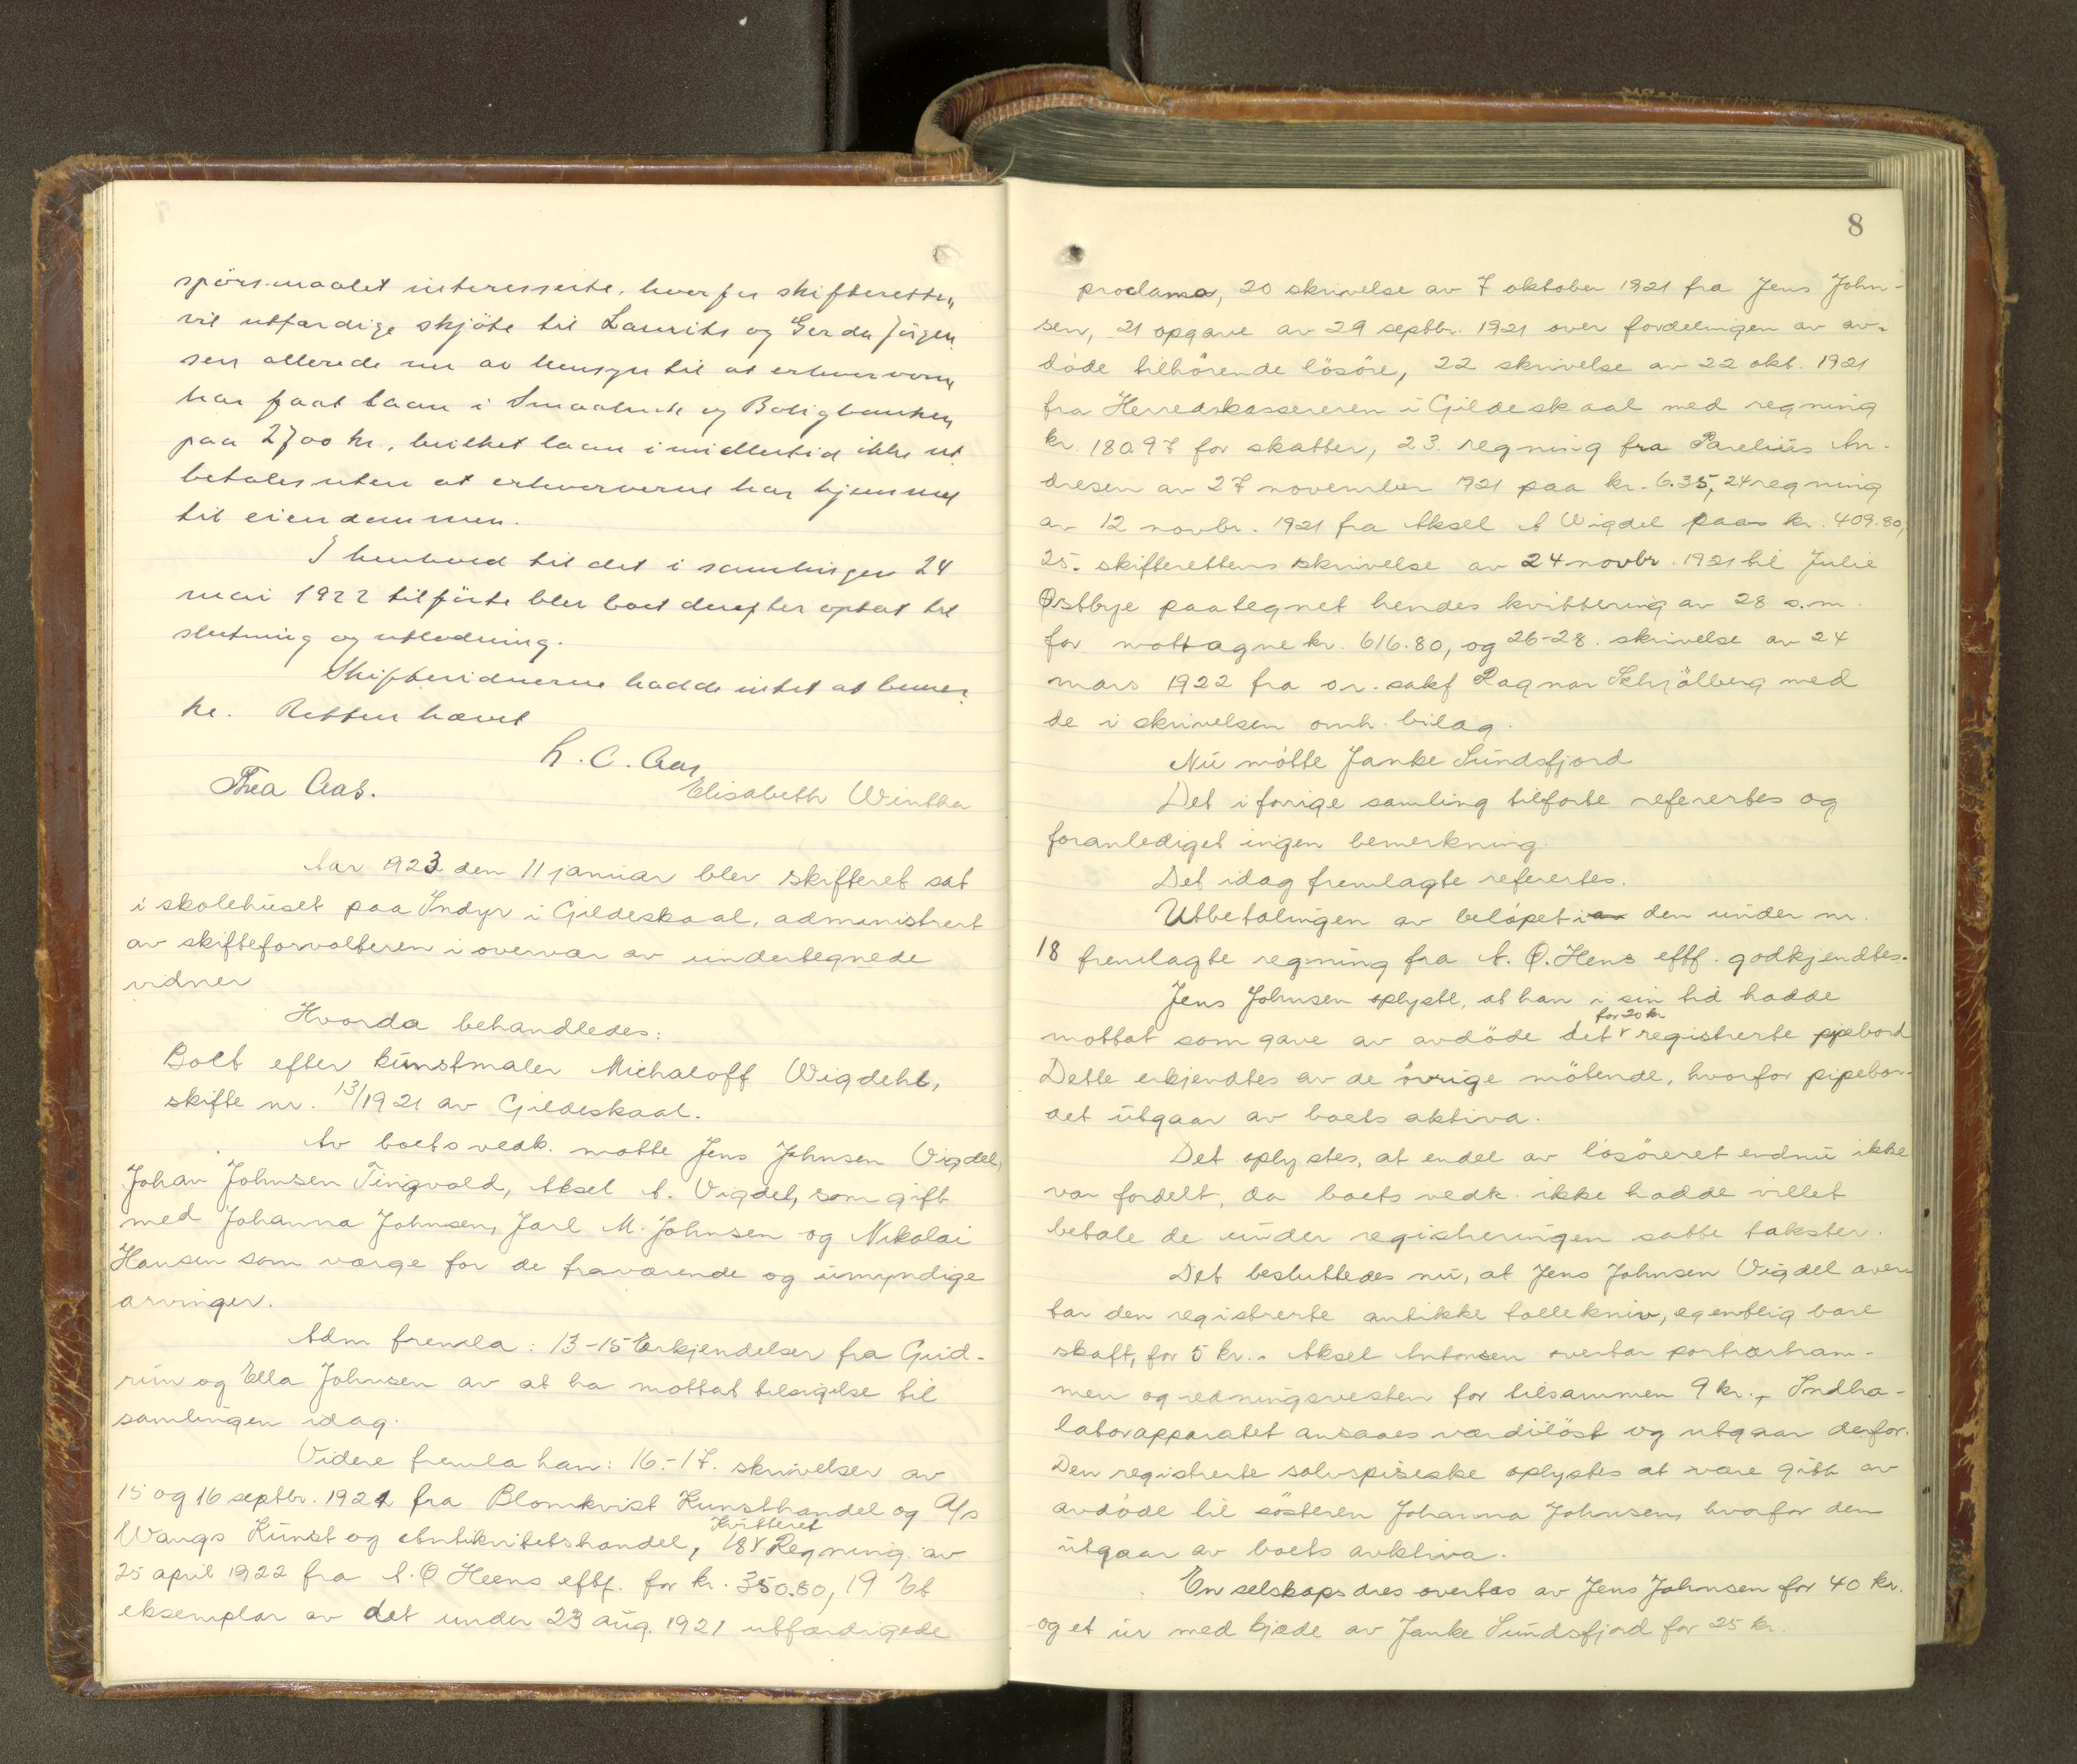 spörsmaalet interesserte, hvorfor skifteretten
vil utfærdige skjöte til Laurits og Gerda Jörgen
sen allerede nu av hensyn til at erhververne
har faat laan i Smaabruk og Boligbanken
paa 2700 kr., hvilket laan imidlertid ikke ut
betales uten at erhververne har hjemmel
til eiendommen.
I henhold til det i samlingen 24
mai 1922 tilförte blev boet derefter optat til
slutning og utlodning.
Skiftevidnerne hadde intet at bemer
ke. Retten hævet
h. C. Aas
Thea Aas. Elisabeth Winther
Aar 1923 den 11 januar blev skifteret sat
i skolehuset paa Indyr i Gildeskaal, administrert
av skifteforvalteren i overvær av undertegnede
vidner
Hvorda behandledes:
Boet efter kunstmaler Michaloff Wigdehl,
skifte nr. 13/1921 av Gildeskaal.
Av boets vedk. møtte Jens Johnsen Vigdel,
Johan Johnsen Tingvold, Aksel A. Vigdel, som gift
med Johanna Johnsen, Jarl M. Johnsen og Nikolai
Hansen som værge for de fraværende og umyndige
arvinger.
Adm fremla: 13-15 Erkjendelser fra Gud-
run og Ella Johnsen av at ha mottat tilsigelse til
samlingen idag.
Videre fremla han: 16.-17. skrivelser av
15 og 16 septbr. 1921 fra Blomkvist Kunsthandel og A/s
Wangs Kunst og Antikvitetshandel, 18 Kvitteret Regning av
25 april 1922 fra A. O Heens eftf. for kr. 350.80, 19 Et
eksemplar av det under 23 aug. 1921 utfærdigede
8
proclama, 20 skrivelse av 7 oktober 1921 fra Jens John-
sen, 21 opgave av 29 septbr. 1921 over fordelingen av av-
døde tilhörende lösöre, 22 skrivelse av 22 okt. 1921
fra Herredskassereren i Gildeskaal med regning
kr. 180.97 for skatter, 23. regning fra Parelius An-
dresen av 27 november 1921 paa kr. 6.35, 24 regning
av 12 novbr. 1921 fra Aksel A Wigdel paa kr. 409.80,
25. skifterettens skrivelse av 24 novbr. 1921 til Julie
Østbye paategnet hendes kvittering av 28 s.m.
for mottagne kr. 616.80, og 26-28. skrivelse av 24
mars 1922 fra o.r. sakf Ragnar Schjölberg med
de i skrivelsen omh. bilag.
Nu møtte Janke Sundsfjord
Det i forige samling tilførte referertes og
foranlediget ingen bemerkning.
Det idag fremlagte referertes.
Utbetalingen av beløpet i den under nr
18 fremlagte regning fra A. O. Hens eftf. godkjendtes.
Jens Johnsen oplyste, at han i sin tid hadde
mottat som gave av avdöde det for 20 kr registrerte pipebord
Dette erkjendtes av de övrige mötende, hvorfor pipebor-
det utgaar av boets aktiva.
Det oplystes, at endel av lösöreret endnu ikke
var fordelt, da boets vedk. ikke hadde villet
betale de under registreringen satte takster.
Det besluttedes nu, at Jens Johnsen Vigdel over-
tar den registrerte antikke tollekniv, egentlig bare
skaft, for 5 kr.. Aksel Antonsen overtar portrætram-
men og redningsvesten for tilsammen 9 kr., Indha-
latorapparatet ansaaes værdilöst og utgaar derfor.
Den registrerte sølvspiseske oplystes at være gitt av
avdøde til sösteren Johanna Johnsen, hvorfor den
utgaar av boets avktiva.
En selskapsdres overtas av Jens Johnsen for 40 kr.
og et ur med kjæde av Janke Sundsfjord for 25 kr.